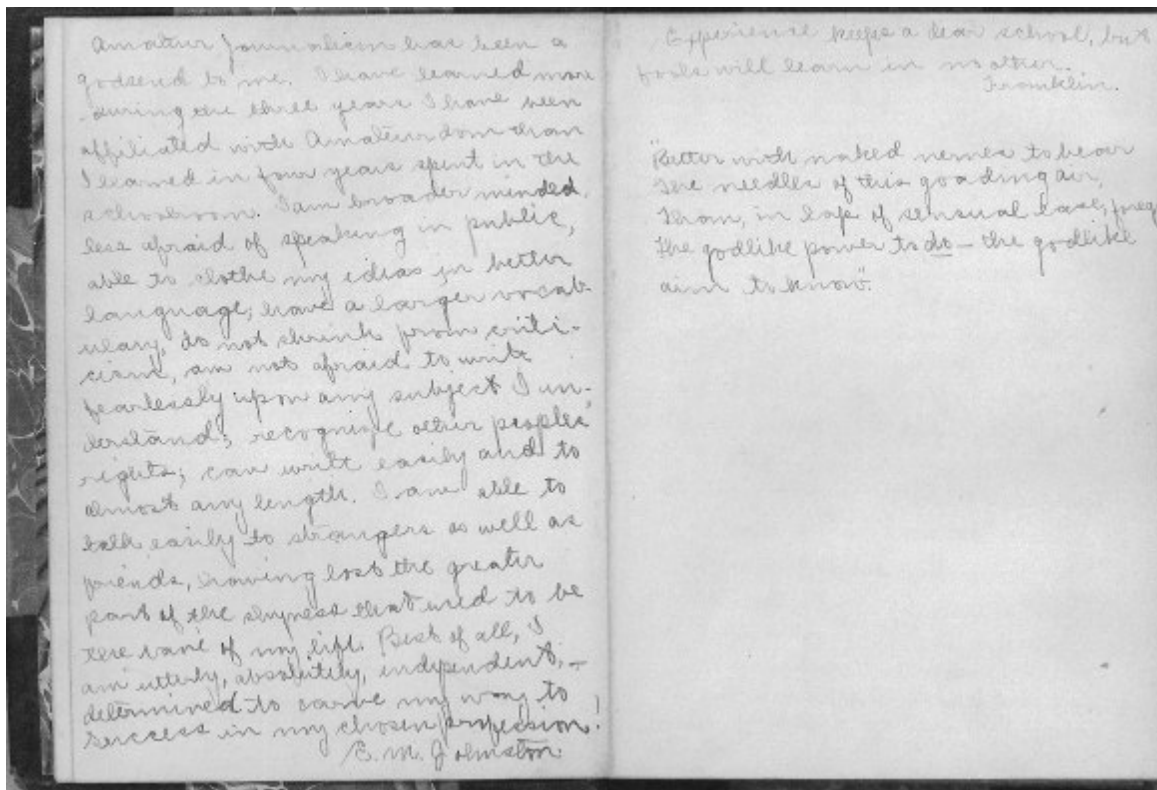 Amateur Journalism has been a
godsend to me. I have learned more
during the three years I have been
affiliated with Amateurdom than
I learned in four years spent in the
schoolroom. I am broader minded,
less afraid of speaking in public,
able to clothe my ideas in better
language; have a larger vocab-
ulary, do not shrink from criti-
cism, am not afraid to write
fearlessly upon any subject I un-
derstand; recognize other peoples'
rights; can write easily and to
almost any length. I am able to
talk easily to strangers as well as
friends, having lost the greater
part of the shyness that used to be
the bane of my life. Best of all, I
am utterly, absolutely, independent, —
determined to carve my way to
success in my chosen profession!
E. M. Johnston.
Experience keeps a dear school, but
fools will learn in no other.
Franklin.
"Better with naked nerves to bear
The needles of this goading air,
Than, in lap of sensual ease, forego
The godlike power to do — the godlike
aim to know."